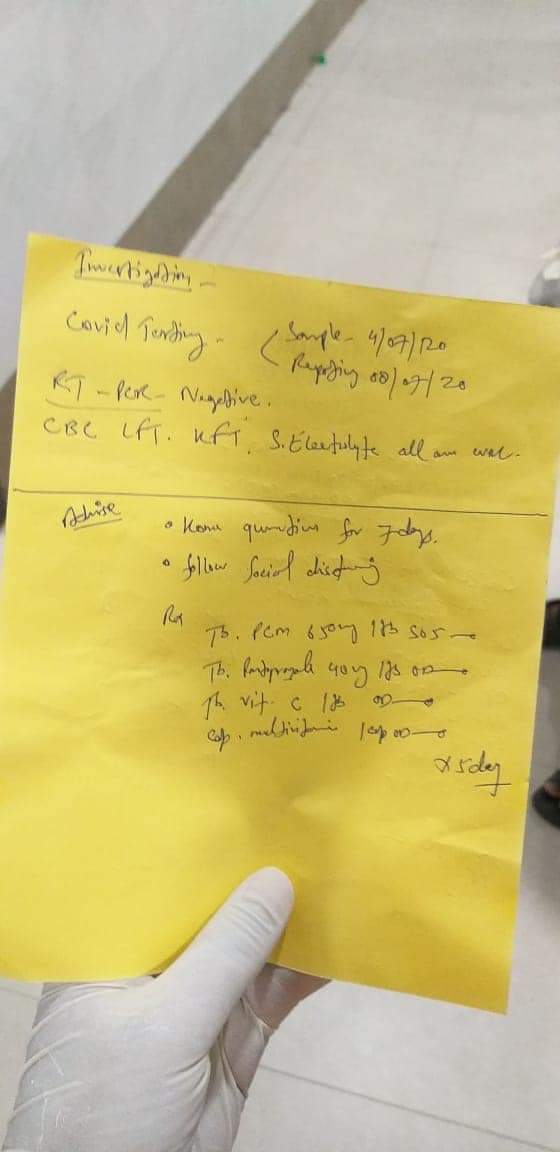 Investigation -
Covid Testing - ( Sample - 4/07/20
Reporting 08/07/20
RT - PCR - Negative.
CBC LFT. KFT, S. Electrolyte all are WNL.
Advise
• Home quarantine for 7 days.
• follow social distancing
Rx
Tb. PCM 650mg 1tb SOS
Tb. Pantoprazole 40mg 1tb OD
Tb. Vit. C 1tb OD
Cap. multivitamin 1cap OD
x 5 day